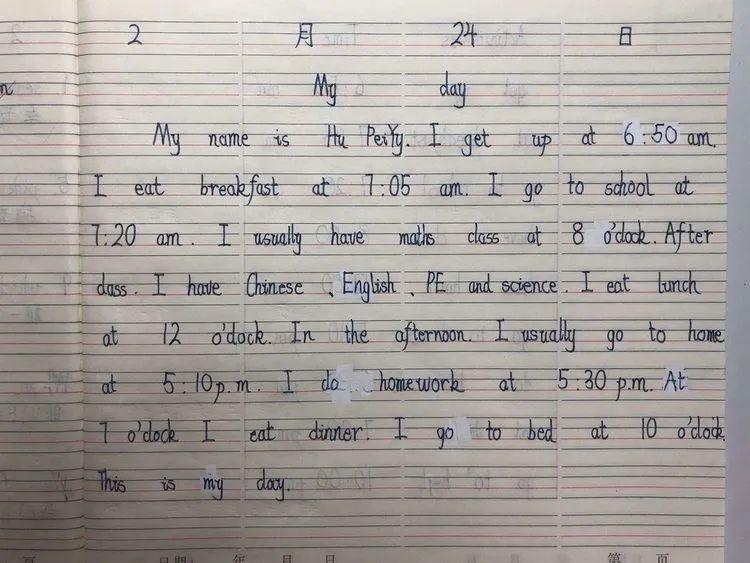 2 月 24 日
My day
My name is Hu PeiYy. I get up at 6:50 am.
I eat breakfast at 7:05 am. I go to school at
7:20 am. I usually have maths class at 8 o'clock. After
class. I have Chinese、English、PE and science. I eat lunch
at 12 o'clock. In the afternoon. I usually go to home
at 5:10p.m. I do homework at 5:30 p.m. At
7 o'clock I eat dinner. I go to bed at 10 o'clock
This is my day.
页 日期: 年 月 日 第 页